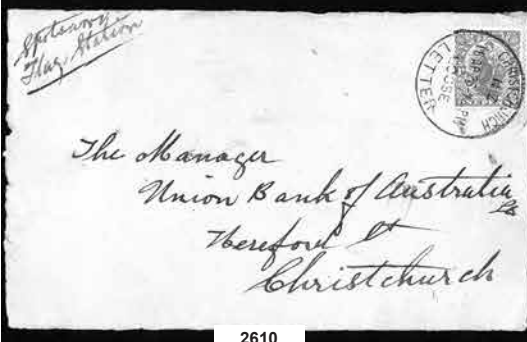 Spotswood
Flag Station
CHRISTCHURCH
LOOSE
LETTER
The Manager
Union Bank of Australia
Hereford St
Christchurch
2610